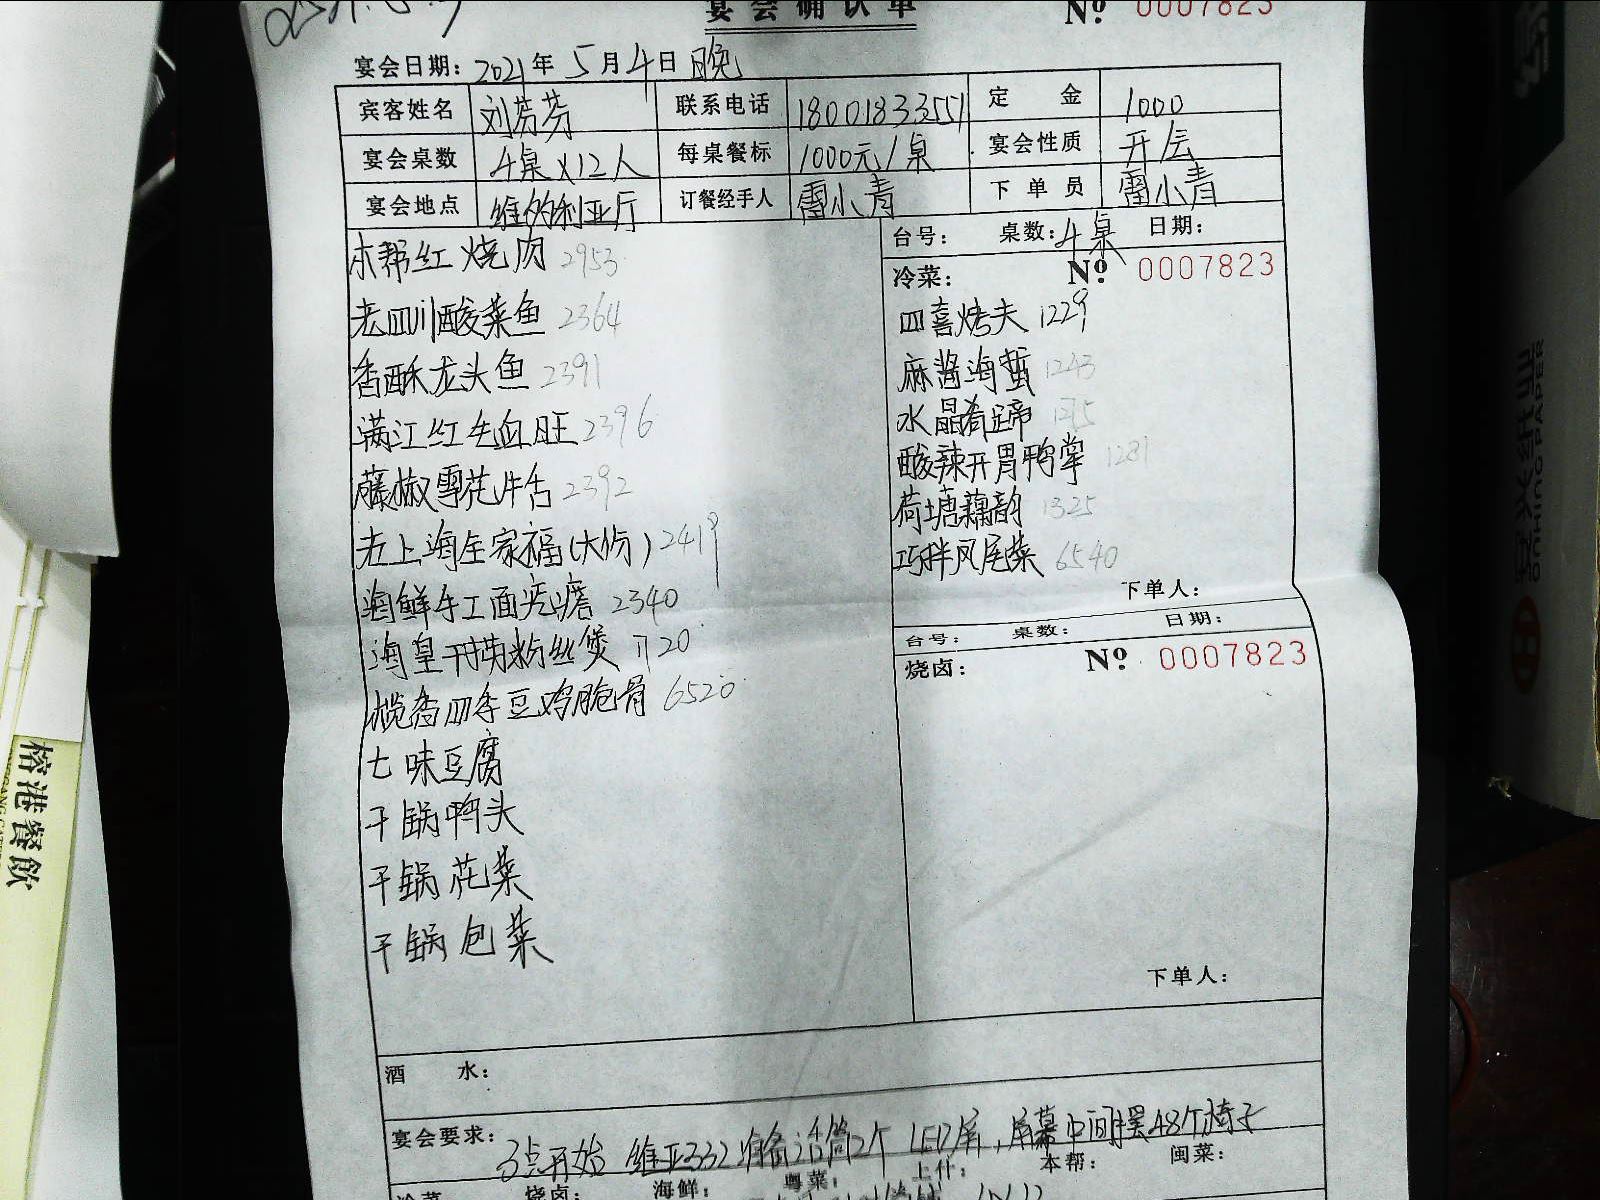 宴会确认单 Nº 0007823
宴会日期：2021年5月4日晚
宾客姓名 刘芬芬 联系电话 18001833551 定金 1000
宴会桌数 4桌×12人 每桌餐标 1000元/桌 宴会性质
宴会地点 维多利亚厅 订餐经手人 雷小青 下单员 雷小青
台号： 桌数：4桌 日期：
本帮红烧肉 2953
冷菜： Nº 0007823
老四川酸菜鱼 2364
四喜烤夫 1229
香酥龙头鱼 2391
麻酱海蜇 1243
满江红毛血旺 2396
水晶肴蹄
藤椒雪花牛舌 2392
酸辣开胃鸭掌 1281
老上海全家福(大份) 2419
荷塘藕韵 1325
海鲜手工面疙瘩 2340
巧拌凤尾菜 6540
下单人：
海皇干捞粉丝煲
台号： 桌数： 日期：
榄香四季豆鸡脆骨 6520
烧卤： Nº 0007823
七味豆腐
干锅鸭头
干锅花菜
干锅包菜
下单人：
酒水：
宴会要求：3点开始 维亚332 准备话筒2个 LED屏，屏幕中间摆48个椅子
冷菜 烧卤： 海鲜： 粤菜： 上什： 本帮： 闽菜：
榕港餐飲